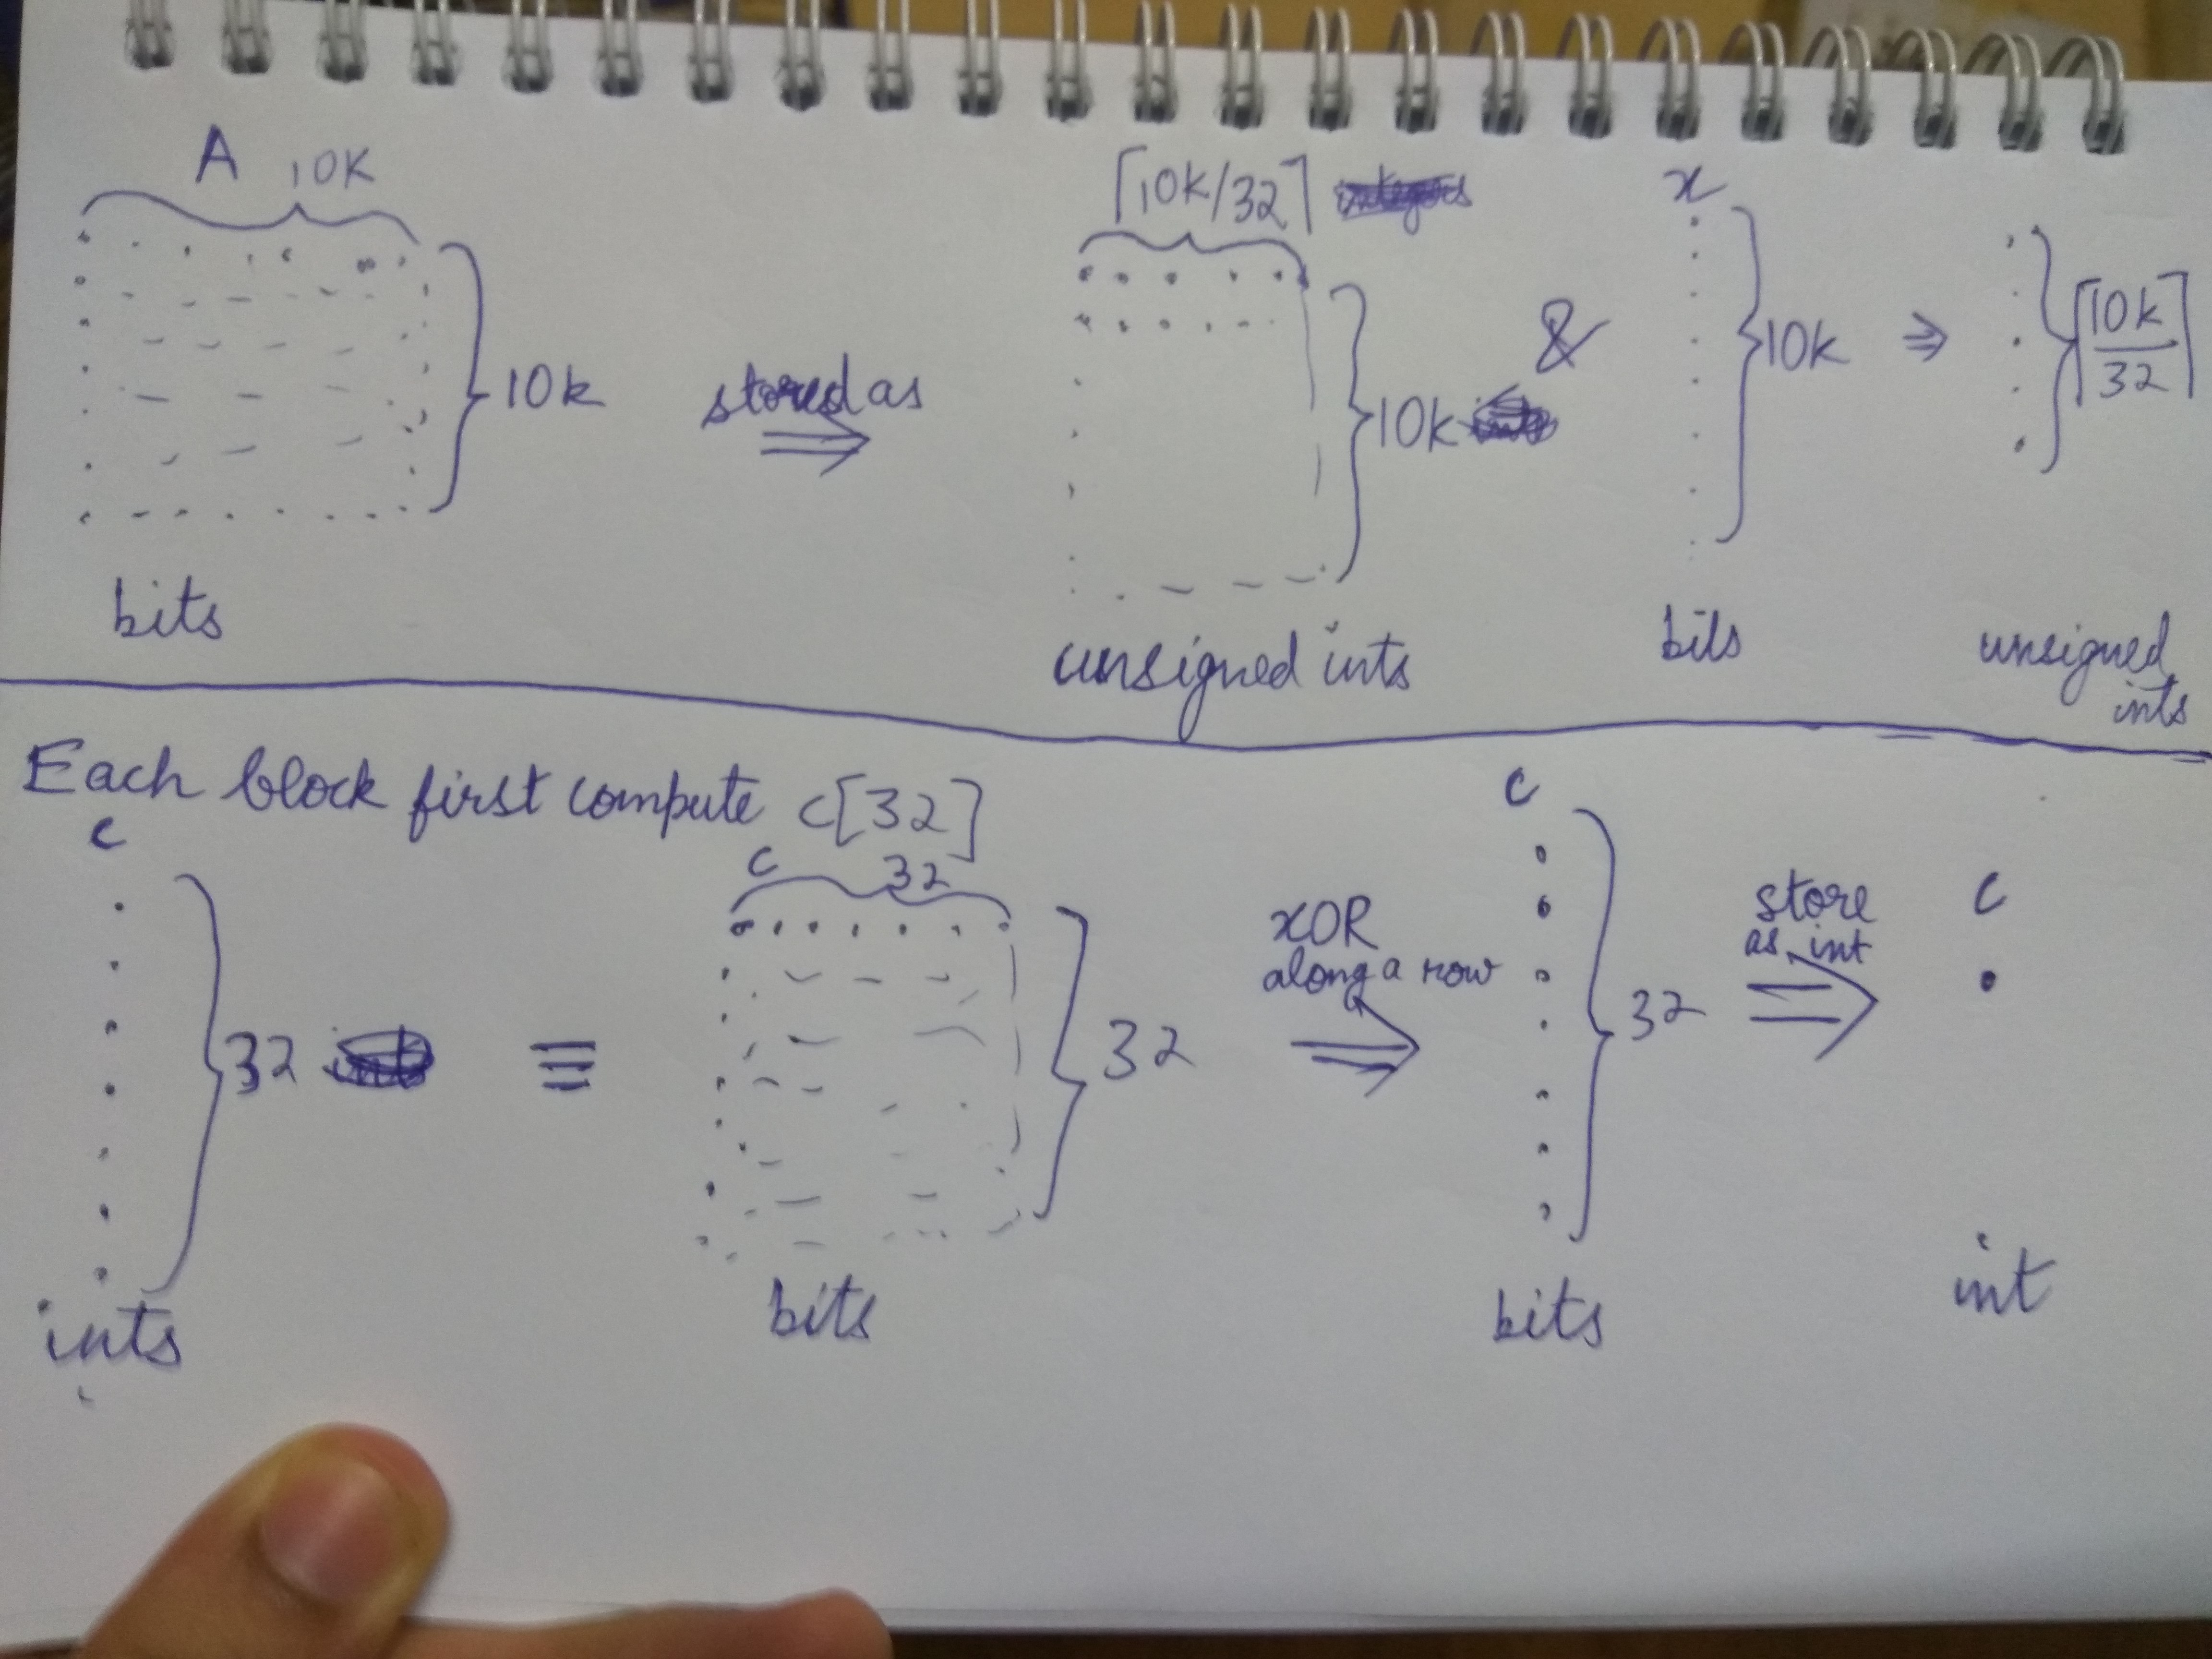 A 10K
10k
bits
stored as
⇒
⌈10K/32⌉
10k
unsigned ints
&
x
10k
bits
⇒
⌈10k/32⌉
unsigned
ints
Each block first compute c[32]
c
32
ints
≡
c 32
32
bits
XOR
along a row
⇒
c
32
bits
store
as int
⇒
c
int